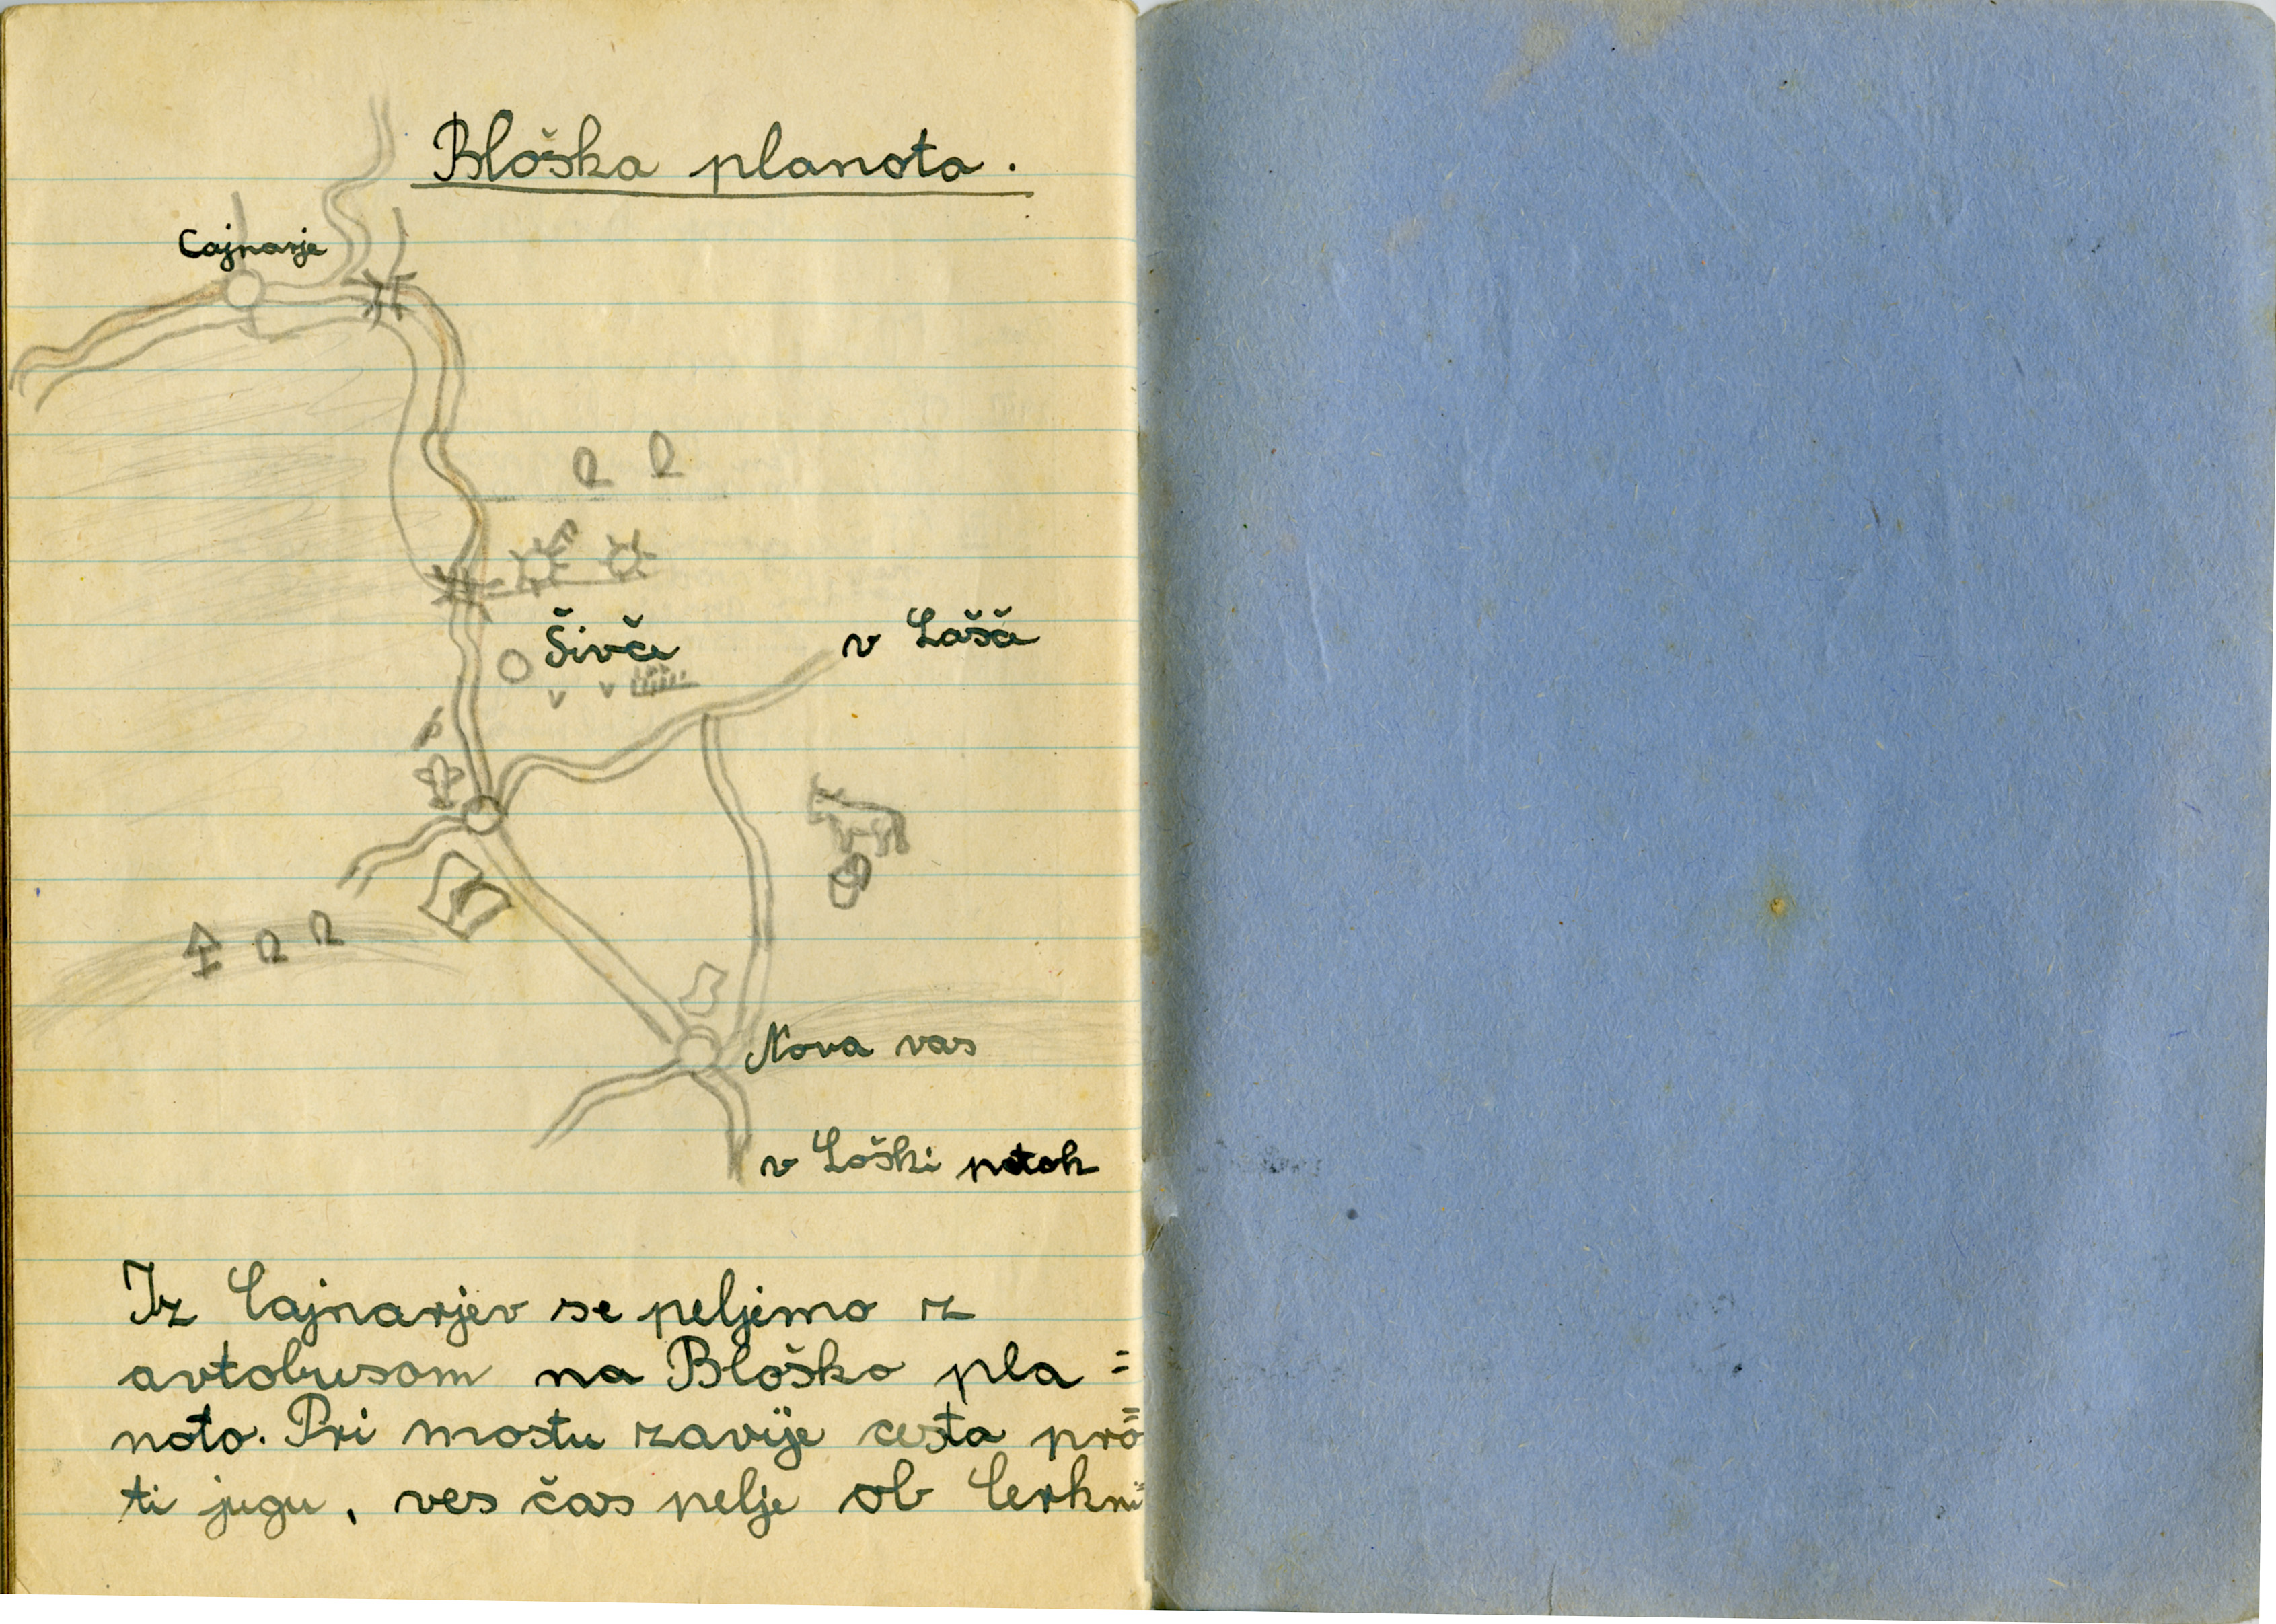 Bloška planota.
Cajnarje
Šivče
v Lašče
Nova vas
v Loški potok
Iz Cajnarjev se peljemo iz
avtobusom na Bloško pla=
noto. Pri mostu zavije cesta pro=
ti jugu, ves čas pelje ob Cerkni=